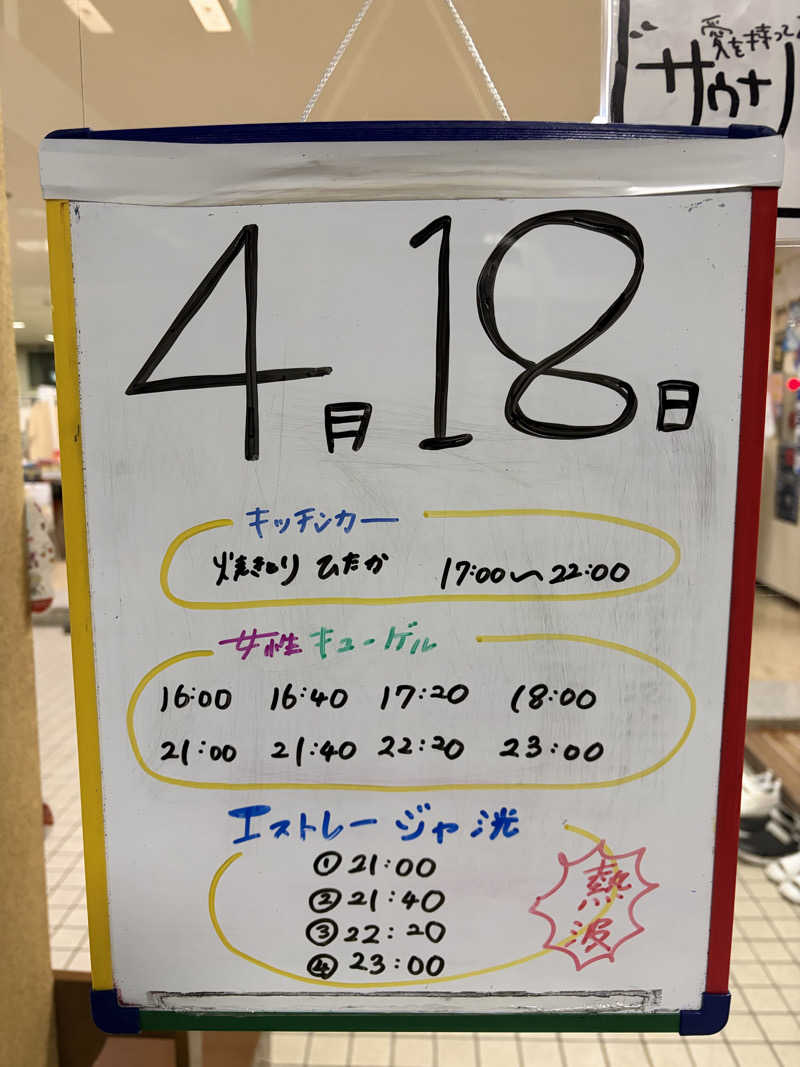 愛を持って
サウナ
4月18日
キッチンカー
焼きとり ひたか 17:00〜22:00
女性キューゲル
16:00 16:40 17:20 18:00
21:00 21:40 22:20 23:00
エストレージャ洸
①21:00
②21:40
③22:20
④23:00
熱
波